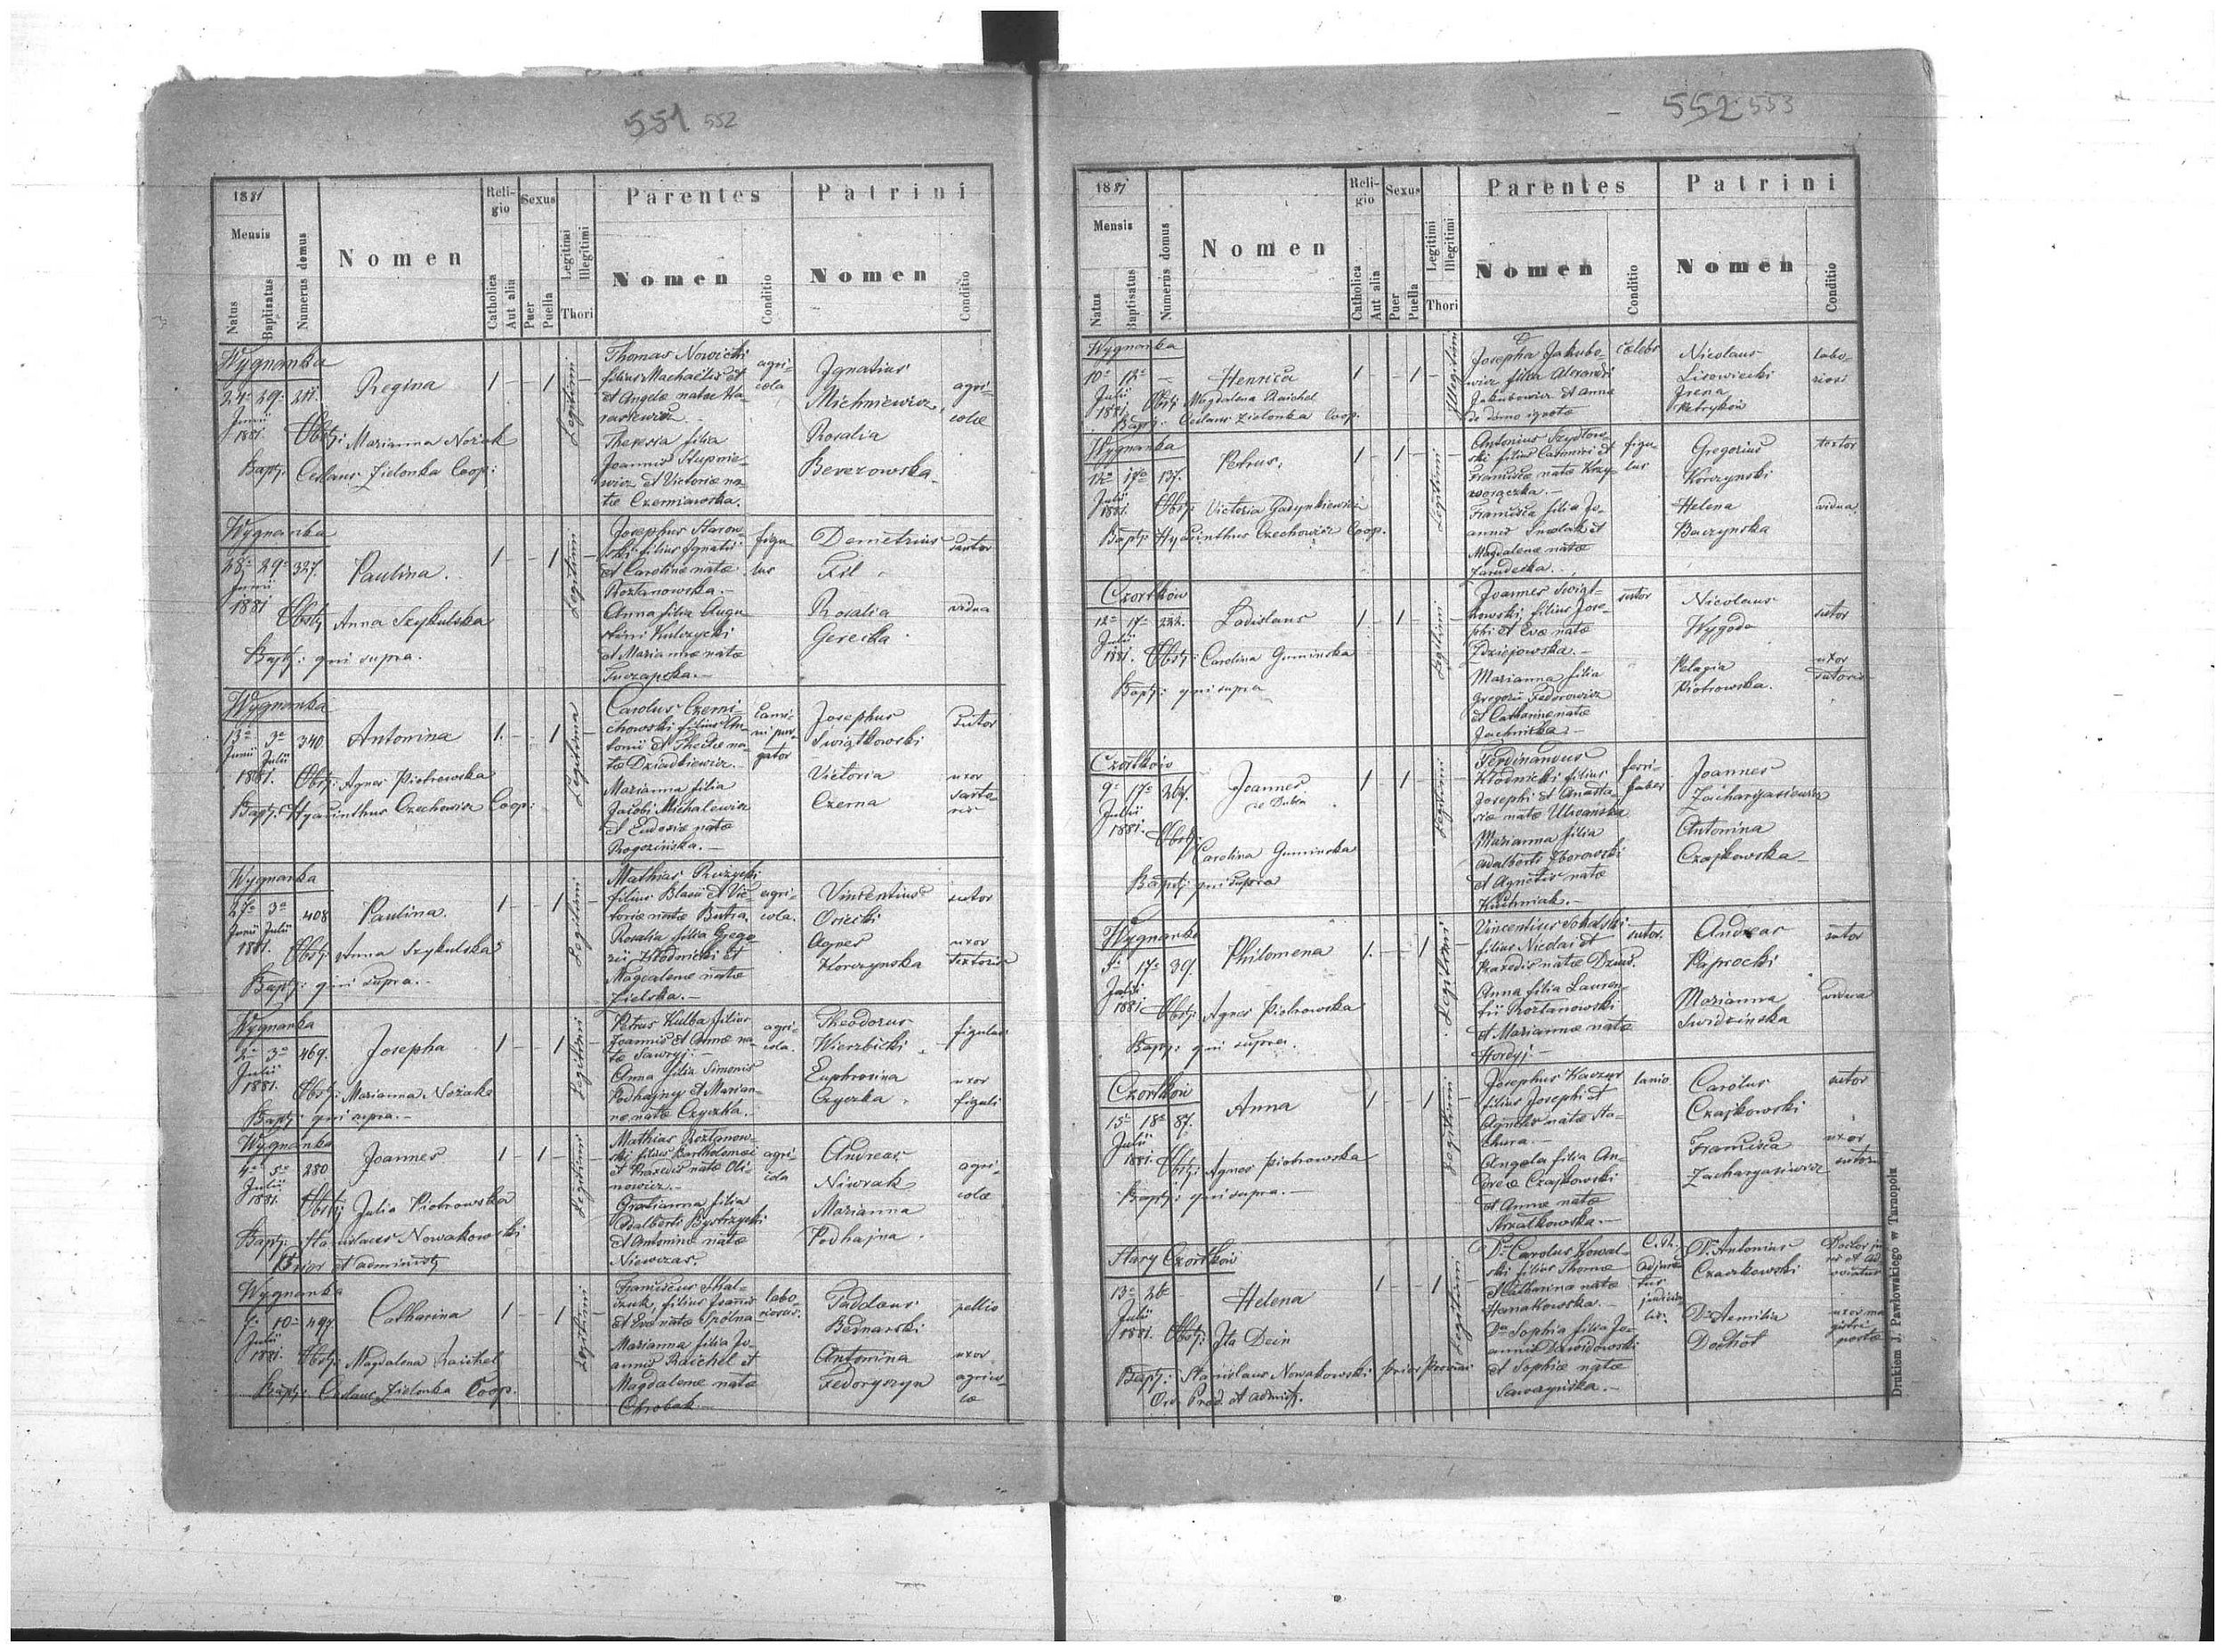 551 552
1881
Mensis
Natus
Baptisatus
Numerus domus
Nomen
Religio
Catholica
Aut alia
Sexus
Puer
Puella
Legitimi
Illegitimi
Thori
Parentes
Nomen
Conditio
Patrini
Nomen
Conditio
Wygnanka
24a 29a 211.
Junii
1881.
Regina
1 - - 1 -
Legitimi
Obstj: Marianna Nożak
Bapt: Ceslaus Zielonka Coop:
Thomas Nowicki
filius Machaëlis et
et Angelæ natæ
Theresia filia
Joannis Stupnie-
wicz et Victoriæ na-
tæ Czerniawska.
agri-
cola
Ignatius
Michniewicz,
Rosalia
Berezowska.
agri-
colæ
Wygnanka
28a 29a 327.
Junii
1881
Paulina.
1 - - 1 -
Legitimi
Obstj Anna Szykulska
Baptj: qui supra.
Josephus Starow-
ski filius Ignatii
et Carolinæ natæ
Roztanowska.-
Anna filia Augu-
stini Kulczycki
et Mariannæ natæ
Tuczapska.-
figu-
lus
Demetrius
Fil
Rosalia
Gerecka
sartor
vidua
Wygnanka
13a 3a 340
Junii Julii
1881.
Antonina
1. - - 1 -
Legitima
Obstj: Agnes Piotrowska
Baptj: Hyacinthus Czechowicz Coop:
Carolus Czerni-
chowski filius An-
tonii et Theclæ na-
tæ Dziadkiewicz.-
Marianna filia
Jacobi Michalewicz
et Eudoxiæ natæ
Rogozińska.-
Cami-
ni pur-
gator
Josephus
Swiątkowski
Victoria
Czerna
sutor
uxor
sarto-
ris
Wygnanka
27a 3a 408
Junii Julii
1881.
Paulina.
1 - - 1 -
Legitimi
Obstj: Anna Szykulska
Baptj: qui supra.-
Mathias Ruzycki
filius Blasii et Vic-
toriæ natæ Butra,
Rosalia filia Grego-
rii Kłodnicki et
Magdalenæ natæ
Zielska.-
agri-
cola.
Vincentius
Osiecki
Agnes
Korczynska
sutor
uxor
textoris
Wygnanka
2a 3a 469.
Julii
1881.
Josepha
1 - - 1 -
Legitimi
Obstj: Marianna Nożak
Baptj: qui supra.-
Petrus Kulba filius
Joannis et Annæ na-
tæ Sawryj.-
Anna filia Simonis
Podhajny et Marian-
næ natæ Czyczka.-
agri-
cola.
Theodorus
Wierzbicki
Euphrosina
Czyczka.
figulus
uxor
figuli
Wygnanka
4a 5a 280
Julii
1881.
Joannes
1 - 1 - -
Legitimi
Obstj Julia Piotrowska
Baptj: Stanislaus Nowakowski
Prior et administj
Mathias Roztanow-
ski filius Bartholomæi
et Praxedis natæ Oli-
nowicz.-
Gratianna filia
Adalberti Bystrzycki
et Antoninæ natæ
Niewczas.
agri-
cola
Andreas
Niwrak
Marianna
Podhajna.
agri-
colæ
Wygnanka
7a 10a 497.
Julii
1881.
Catharina
1 - - 1 -
Legitimi
Obstj: Magdalena Raichel
Baptj: Ceslaus Zielonka Coop.
Franciscus Skal-
czuk, filius Joannis
et Evæ natæ Spólna
Marianna filia Jo-
annis Raichel et
Magdalenæ natæ
Chrobak.-
labo-
riosus.
Taddæus
Bednarski
Antonina
Fedoryszyn
pellio
uxor
agrico-
læ
552 553
1881
Mensis
Natus
Baptisatus
Numerus domus
Nomen
Religio
Catholica
Aut alia
Sexus
Puer
Puella
Legitimi
Illegitimi
Thori
Parentes
Nomen
Conditio
Patrini
Nomen
Conditio
Wygnanka
10a 12a -
Julii
1881
Henrica
1 - - 1 -
Illegitimi
Obstj Magdalena Raichel
Baptj: Ceslaus Zielonka Coop.
Josepha Jakubo-
wicz filia Alexandri
Jakubowicz et Annæ
de domo ignotæ
cælebs
Nicolaus
Lisowiecki
Irena
Petryków
labo-
riosi
Wygnanka
12a 17a 137.
Julii
1881.
Petrus.
1 - 1 - -
Legitimi
Obstj: Victoria Gadynkiewicz
Baptj: Hyacinthus Czechowicz Coop.
Antonius Szydłow-
ski filius Casimiri et
Franciscæ natæ Krzy-
worączka.-
Francisca filia Jo-
annis Smolak et
Magdalenæ natæ
Zarudecka.-
figu-
lus
Gregorius
Korczynski
Helena
Buczynska
textor
vidua
Czortków
12a 17a 232.
Julii
1881.
Ladislaus
1 - 1 - -
Legitimi
Obstj: Carolina Guminska
Baptj: qui supra
Joannes Swiąt-
kowski, filius Jose-
phi et Evæ natæ
Zdziejowska.-
Marianna filia
Gregorii Fedorowicz
et Catharinæ natæ
Jachnicka.-
sutor
Nicolaus
Wygoda
Pelagia
Piotrowska.
sutor
uxor
sutoris
Czortków
9a 17a 267.
Julii
1881.
Joannes
1 - 1 - -
Legitimi
Obstj: Carolina Guminska
Baptj: qui supra
Ferdinandus
Kłodnicki filius
Josephi et Anasta-
siæ natæ Ulwańska
Marianna filia
Adalberti Zborowski
et Agnetis natæ
Kuchniak.-
ferri-
faber
Joannes
Zacharyasiewicz
Antonina
Czajkowska
Wygnanka
5a 17a 39.
Julii
1881.
Philomena
1. - - 1 -
Legitimi
Obstj: Agnes Piotrowska
Baptj: qui supra.
Vincentius Sokalski
filius Nicolai et
Praxedis natæ Dzius.
Anna filia Lauren-
tii Roztanowski
et Mariannæ natæ
Hordyj.-
sutor.
Andreas
Paprocki
Marianna
Swidzinska
sutor
vidua
Czortków
15a 18a 87.
Julii
1881.
Anna
1 - - 1 -
Legitimi
Obstj: Agnes Piotrowska
Baptj: qui supra.-
Josephus Kaczur
filius Josephi et
Agnetis natæ Sta-
chura.-
Angela filia An-
dreæ Czajkowski
et Annæ natæ
Strzałkowska.-
lanio
Carolus
Czajkowski
Francisca
Zacharyasiewicz
sutor
uxor
sutoris
Stary Czortków
13a 26
Julii
1881.
Helena
1 - - 1 -
Legitimi
Obstj: Ita Dein
Baptj: Stanislaus Nowakowski Prior
Ord. Præd. et administ.
Dr. Carolus Kowal-
ski filius Thomæ
et Catharinæ natæ
Hanakowska.-
Dna Sophia filia Jo-
annis Dawidowski
et Sophiæ natæ
Sawczyńska.-
adjunc-
tus
judicia-
lis.
Dr. Antonius
Czaczkowski
Dna Aemilia
Dochot
Doctor ju-
ris et ad-
vocatus
uxor ma-
gistri
postæ
Drukiem J. Pawłowskiego w Tarnopolu